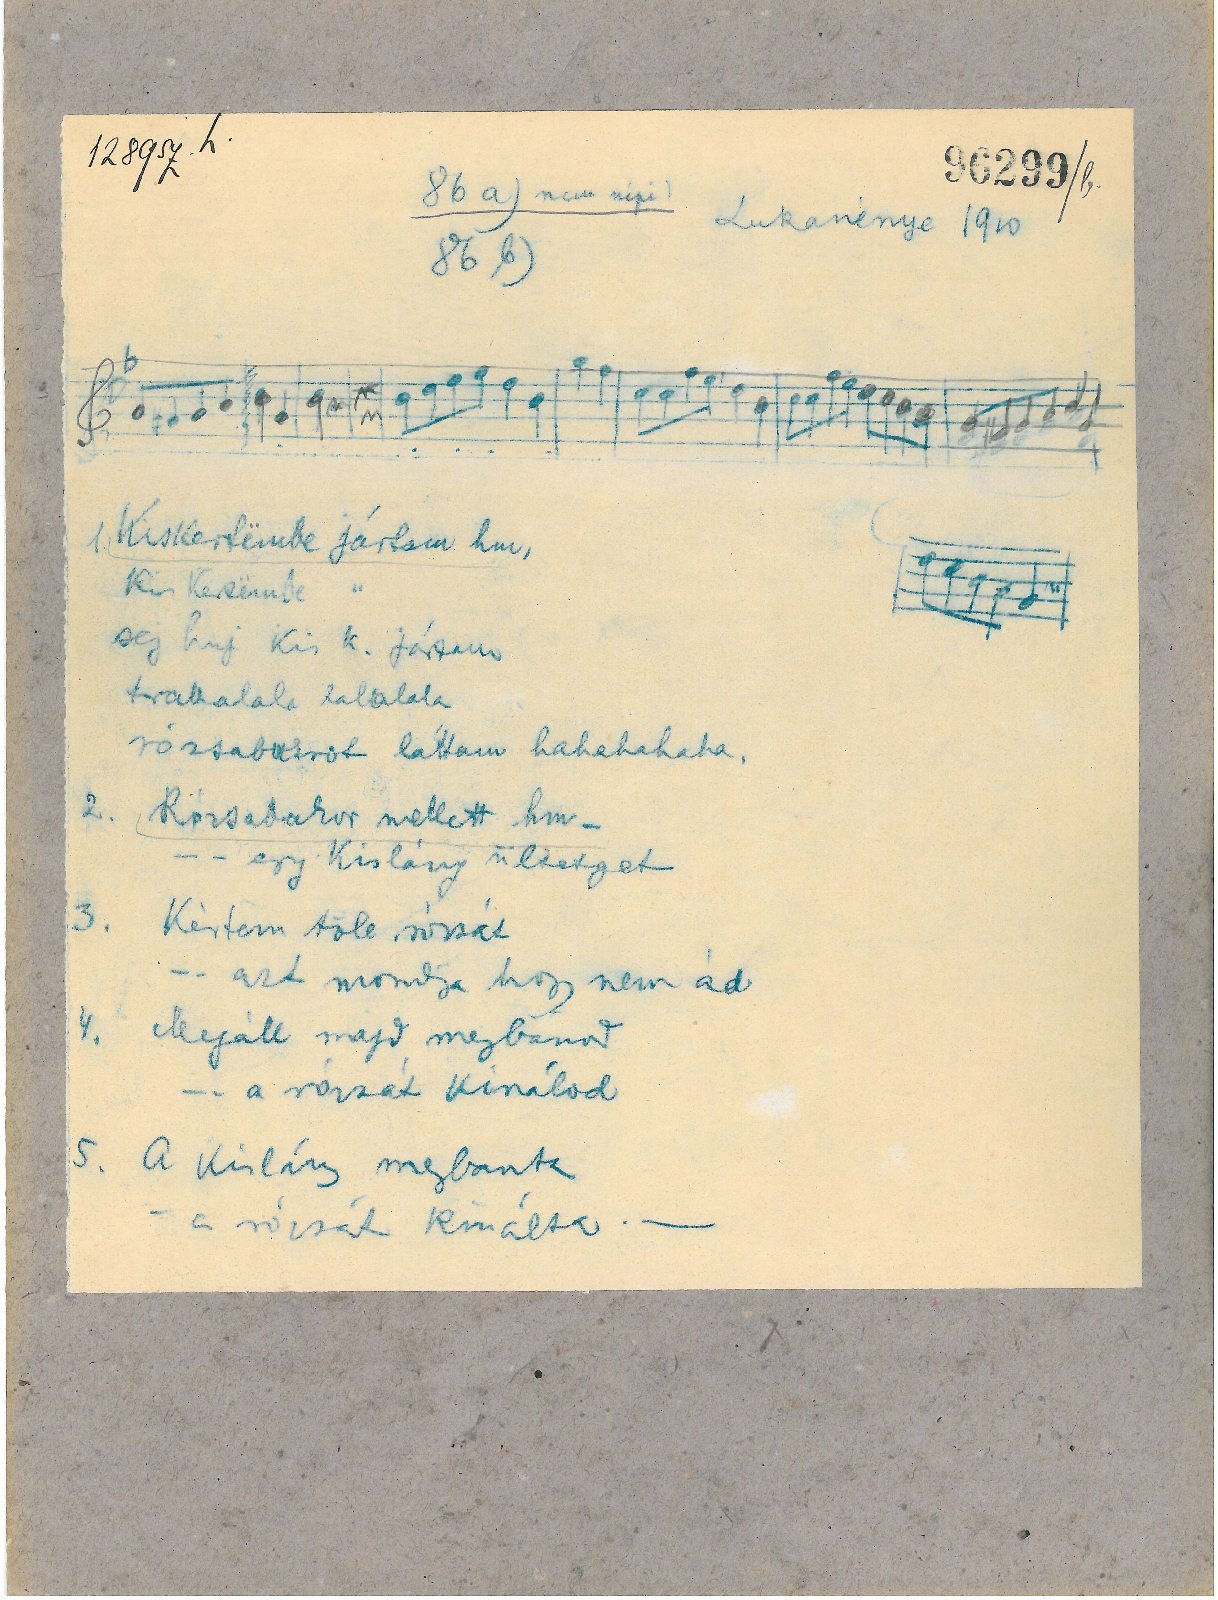 12895z. h.
96299/b.
86 a) nem népi
Lukanénye 1910
86 b)
1. Kiskertëmbe jártam hm,
Kis Kertëmbe "
sej huj Kis k. jártam
trallalala lalalala
rózsabokrot láttam hahahahaha.
2. Rózsabokor mellett hm –
– – egy Kislány ültetget
3. Kértem tőle rózsát
– – azt mondja hogy nem ád
4. Megáll majd megbánod
– – a rózsát kínálod
5. A kislány megbánta
– a rózsát kinálta . —